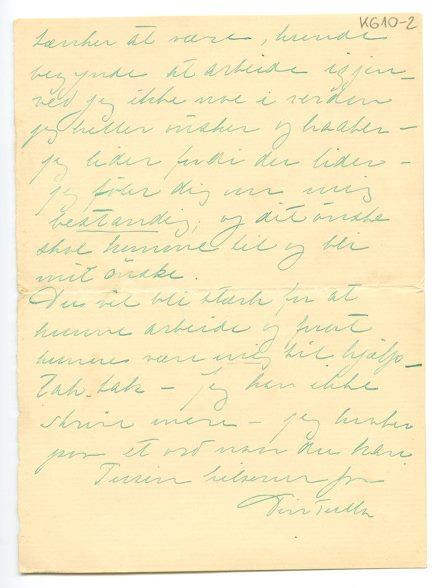 KG10-2
tænker at være, kunde
begynde at arbeide igjen_
ved jeg ikke noe i verden
jeg heller ønsker og haaber –
jeg lider fordi du lider –
jeg føler dig om mig
bestandig, og dit ønske
skal komme til og bli
mit ønske.
Du vil bli stærk for at
kunne arbeide og
kunne være mig til hjælp –
tak – tak – jeg kan ikke
skrive mere – jeg haaber
paa et ord naar du kan.
Tusin hilsener fra
Din Tulla